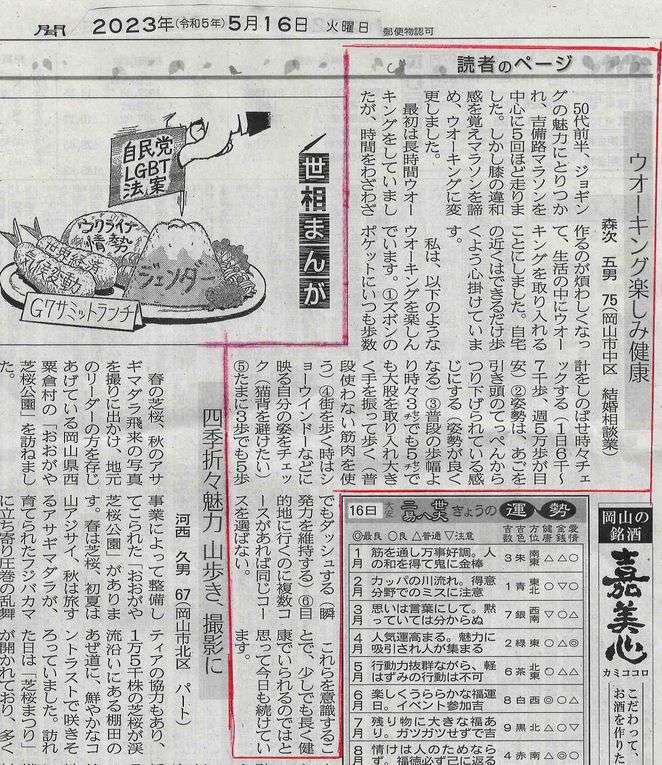 聞
2023年(令和5年)5月16日 火曜日 郵便物認可
読者のページ
ウオーキング楽しみ健康
森次 五男 75(岡山市中区 結婚相談業)
50代前半、ジョギン
グの魅力にとりつか
れ、吉備路マラソンを
中心に5回ほど走りま
した。しかし膝の違和
感を覚えマラソンを諦
め、ウオーキングに変
更しました。
最初は長時間ウオー
キングをしていまし
たが、時間をわざわざ
作るのが煩わしくなっ
て、生活の中にウオー
キングを取り入れる
ことにしました。自宅
の近くはできるだけ歩
くよう心掛けていま
す。
私は、以下のような
ウオーキングを楽しん
でいます。①ズボンの
ポケットにいつも歩数
計をしのばせ時々チェ
ックする(1日6千―
7千歩、週5万歩が目
安)②姿勢は、あごを
引き頭のてっぺんから
つり下げられている感
じにする(姿勢が良く
なる)③普段の歩幅よ
り時々3㌢でも5㌢で
も大股を取り入れ大き
く手を振って歩く(普
段使わない筋肉を使
う)④街を歩く時はシ
ョーウインドーなどに
映る自分の姿をチェッ
ク(猫背を避けたい)
⑤たまに3歩でも5歩
でもダッシュする(瞬
発力を維持する)⑥目
的地に行くのに複数コ
ースがあれば同じコー
スを選ばない。
これらを意識するこ
とで、少しでも長く健
康でいられるのではと
思って今日も続けてい
ます。
世相まんが
自民党
LGBT
法案
ウクライナ
情勢
世界経済
気候変動
ジェンダー
G7サミットランチ
四季折々魅力 山歩き、撮影に
河西 久男 67(岡山市北区 パート)
春の芝桜、秋のアサ
ギマダラ飛来の写真
を撮りに出かけ、地元
のリーダーの方を存じ
あげている岡山県西
粟倉村の「おおがや
芝桜公園」を訪ねまし
た。
事業によって整備し
てこられた「おおがや
芝桜公園」がありま
す。春は芝桜、初夏は
山アジサイ、秋は旅す
るアサギマダラが、
育てられたフジバカマ
に立ち寄り圧巻の乱舞
ティアの協力もあり、
1万5千株の芝桜が渓
流沿いにある棚田の
あぜ道に、鮮やかなコ
ントラストで咲きそ
ろっていました。訪れ
た日は「芝桜まつり」
が開かれており、多く
16日 きょうの運勢
◎最良 ○良 △普通 ▽注意
吉数 吉色 方位 健康 金銭 愛情
1月 筋を通し万事好調。人の和を得て鬼に金棒 3 朱 南東 △△○
2月 カッパの川流れ。得意分野でのミスに注意 1 青 東北 ○▽○
3月 思いは言葉にして。黙っていては分からぬ 7 銀 西南 ▽○△
4月 人気運高まる。魅力に吸引され人が集まる 2 緑 東 ○△◎
5月 行動力抜群ながら、軽はずみの行動は不可 6 茶 北東 ○△△
6月 楽しくうららかな福運日。イベント参加吉 8 白 西 ◎○△
7月 残り物に大きな福あり。ガツガツせずで吉 9 黒 北 △○▽
8月 情けは人のためならず。福徳必ず己に返る 4 赤 南 △◎○
岡山の
銘酒
嘉美心
カミココロ
こだわって、
お酒を作りた